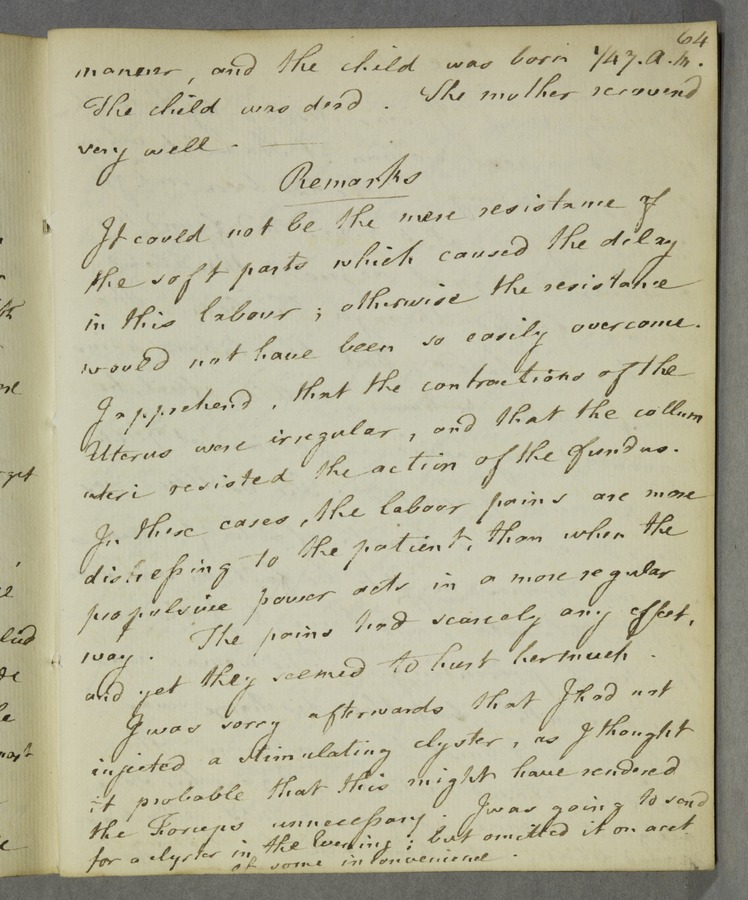 64
manner, and the child was born 1/47. A.M.
The child was dead. The mother recovered
very well.
Remarks
It could not be the mere resistance of
the soft parts which caused the delay
in this labour; otherwise the resistance
would not have been so easily overcome.
I apprehend, that the contractions of the
Uterus were irregular, and that the collum
uteri resisted the action of the fundus.
In these cases, the labour pains are more
distressing to the patient, than when the
propulsive power acts in a more regular
way. The pains had scarcely any effect,
and yet they seemed to hurt her much.
I was sorry afterwards that I had not
injected a stimulating clyster, as I thought
it probable that this might have rendered
the Forceps unnecessary. I was going to send
for a clyster in the Evening; but omitted it on acct.
of some inconvenience.